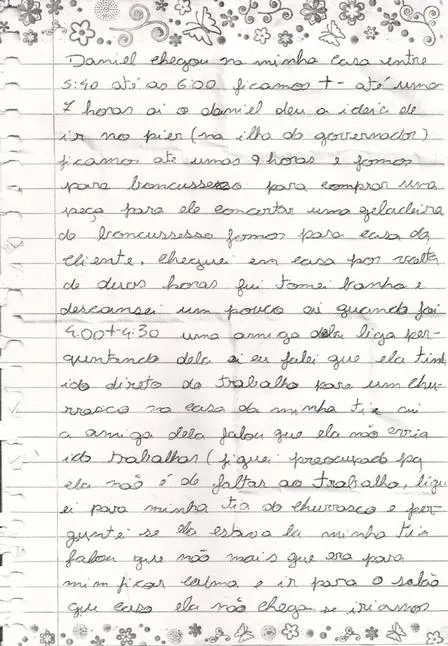 Daniel chegou na minha casa entre
5:40 até as 6:00 ficamos +- até umas
7 horas ai o daniel deu a ideia de
ir no pier (na ilha do governador)
ficamos até umas 9 horas e fomos
para boncussesso para comprar uma
peça para ele concertar uma geladeira
de boncussesso fomos para casa da
cliente. cheguei em casa por volta
de duas horas fui tomei banho e
descansei um pouco ai quando foi
4:00+-4:30 uma amiga dela liga per-
guntando dela ai eu falei que ela tinh
ido direto do trabalho para um chu-
rrasco na casa da minha tia ai
a amiga dela falou que ela não avia
ido trabalhar (fiquei preocupado pq
ela não é de faltar ao trabalho, ligu
ei para minha tia do churrasco e per-
guntei se ela estava la minha tia
falou que não mais que era para
mim ficar calmo e ir para o salão
que caso ela não chega-se iriamos